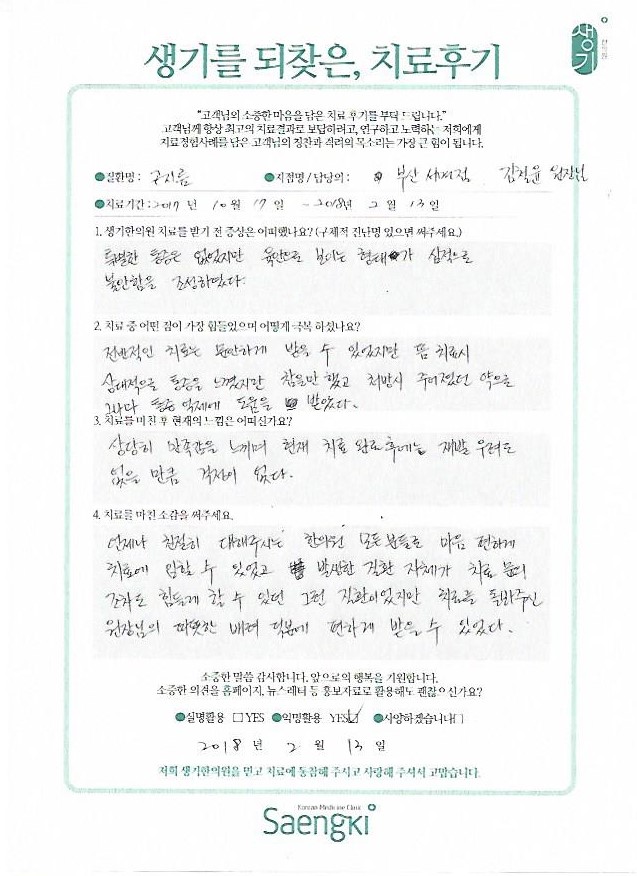 생기 한의원
생기를 되찾은, 치료후기
"고객님의 소중한 마음을 담은 치료 후기를 부탁 드립니다."
고객님께 항상 최고의 치료결과로 보답하려고, 연구하고 노력하는 저희에게
치료경험사례를 담은 고객님의 칭찬과 격려의 목소리는 가장 큰 힘이 됩니다.
질환명: 곤지름 지점명/담당의: 부산 서면점 원장님
치료기간: 2017 년 10 월 17 일 ~ 2018년 2 월 13 일
1. 생기한의원 치료를 받기 전 증상은 어떠했나요? (구체적 진단명 있으면 써주세요.)
특별한 통증은 없었지만 육안으로 보이는 형태가 심적으로
불안함을 조성하였다.
2. 치료 중 어떤 점이 가장 힘들었으며 어떻게 극복 하셨나요?
전반적인 치료는 편안하게 받을 수 있었지만 뜸 치료시
상대적으로 통증을 느꼈지만 참을만 했고 처방시 주어졌던 약으로
그나마 통증 억제에 도움을 받았다.
3. 치료를 마친 후 현재의 느낌은 어떠신가요?
상당히 만족감을 느끼며 현재 치료 완료 후에는 재발 우려도
없을 만큼 걱정이 없다.
4. 치료를 마친 소감을 써주세요.
언제나 친절히 대해주시는 한의원 모든 분들로 마음 편하게
치료에 임할 수 있었고 발생한 질환 자체가 치료 문의
조차도 힘들게 할 수 있던 그런 질환이었지만 치료를 돌봐주신
원장님의 따뜻한 배려 덕분에 편하게 받을 수 있었다.
소중한 말씀 감사합니다. 앞으로의 행복을 기원합니다.
소중한 의견을 홈페이지, 뉴스레터 등 홍보자료로 활용해도 괜찮으신가요?
실명활용 □ YES 익명활용 YES ☑ 사양하겠습니다 □
2018 년 2 월 13 일
저희 생기한의원을 믿고 치료에 동참해 주시고 사랑해 주셔서 고맙습니다.
Korean Medicine Clinic
Saengki